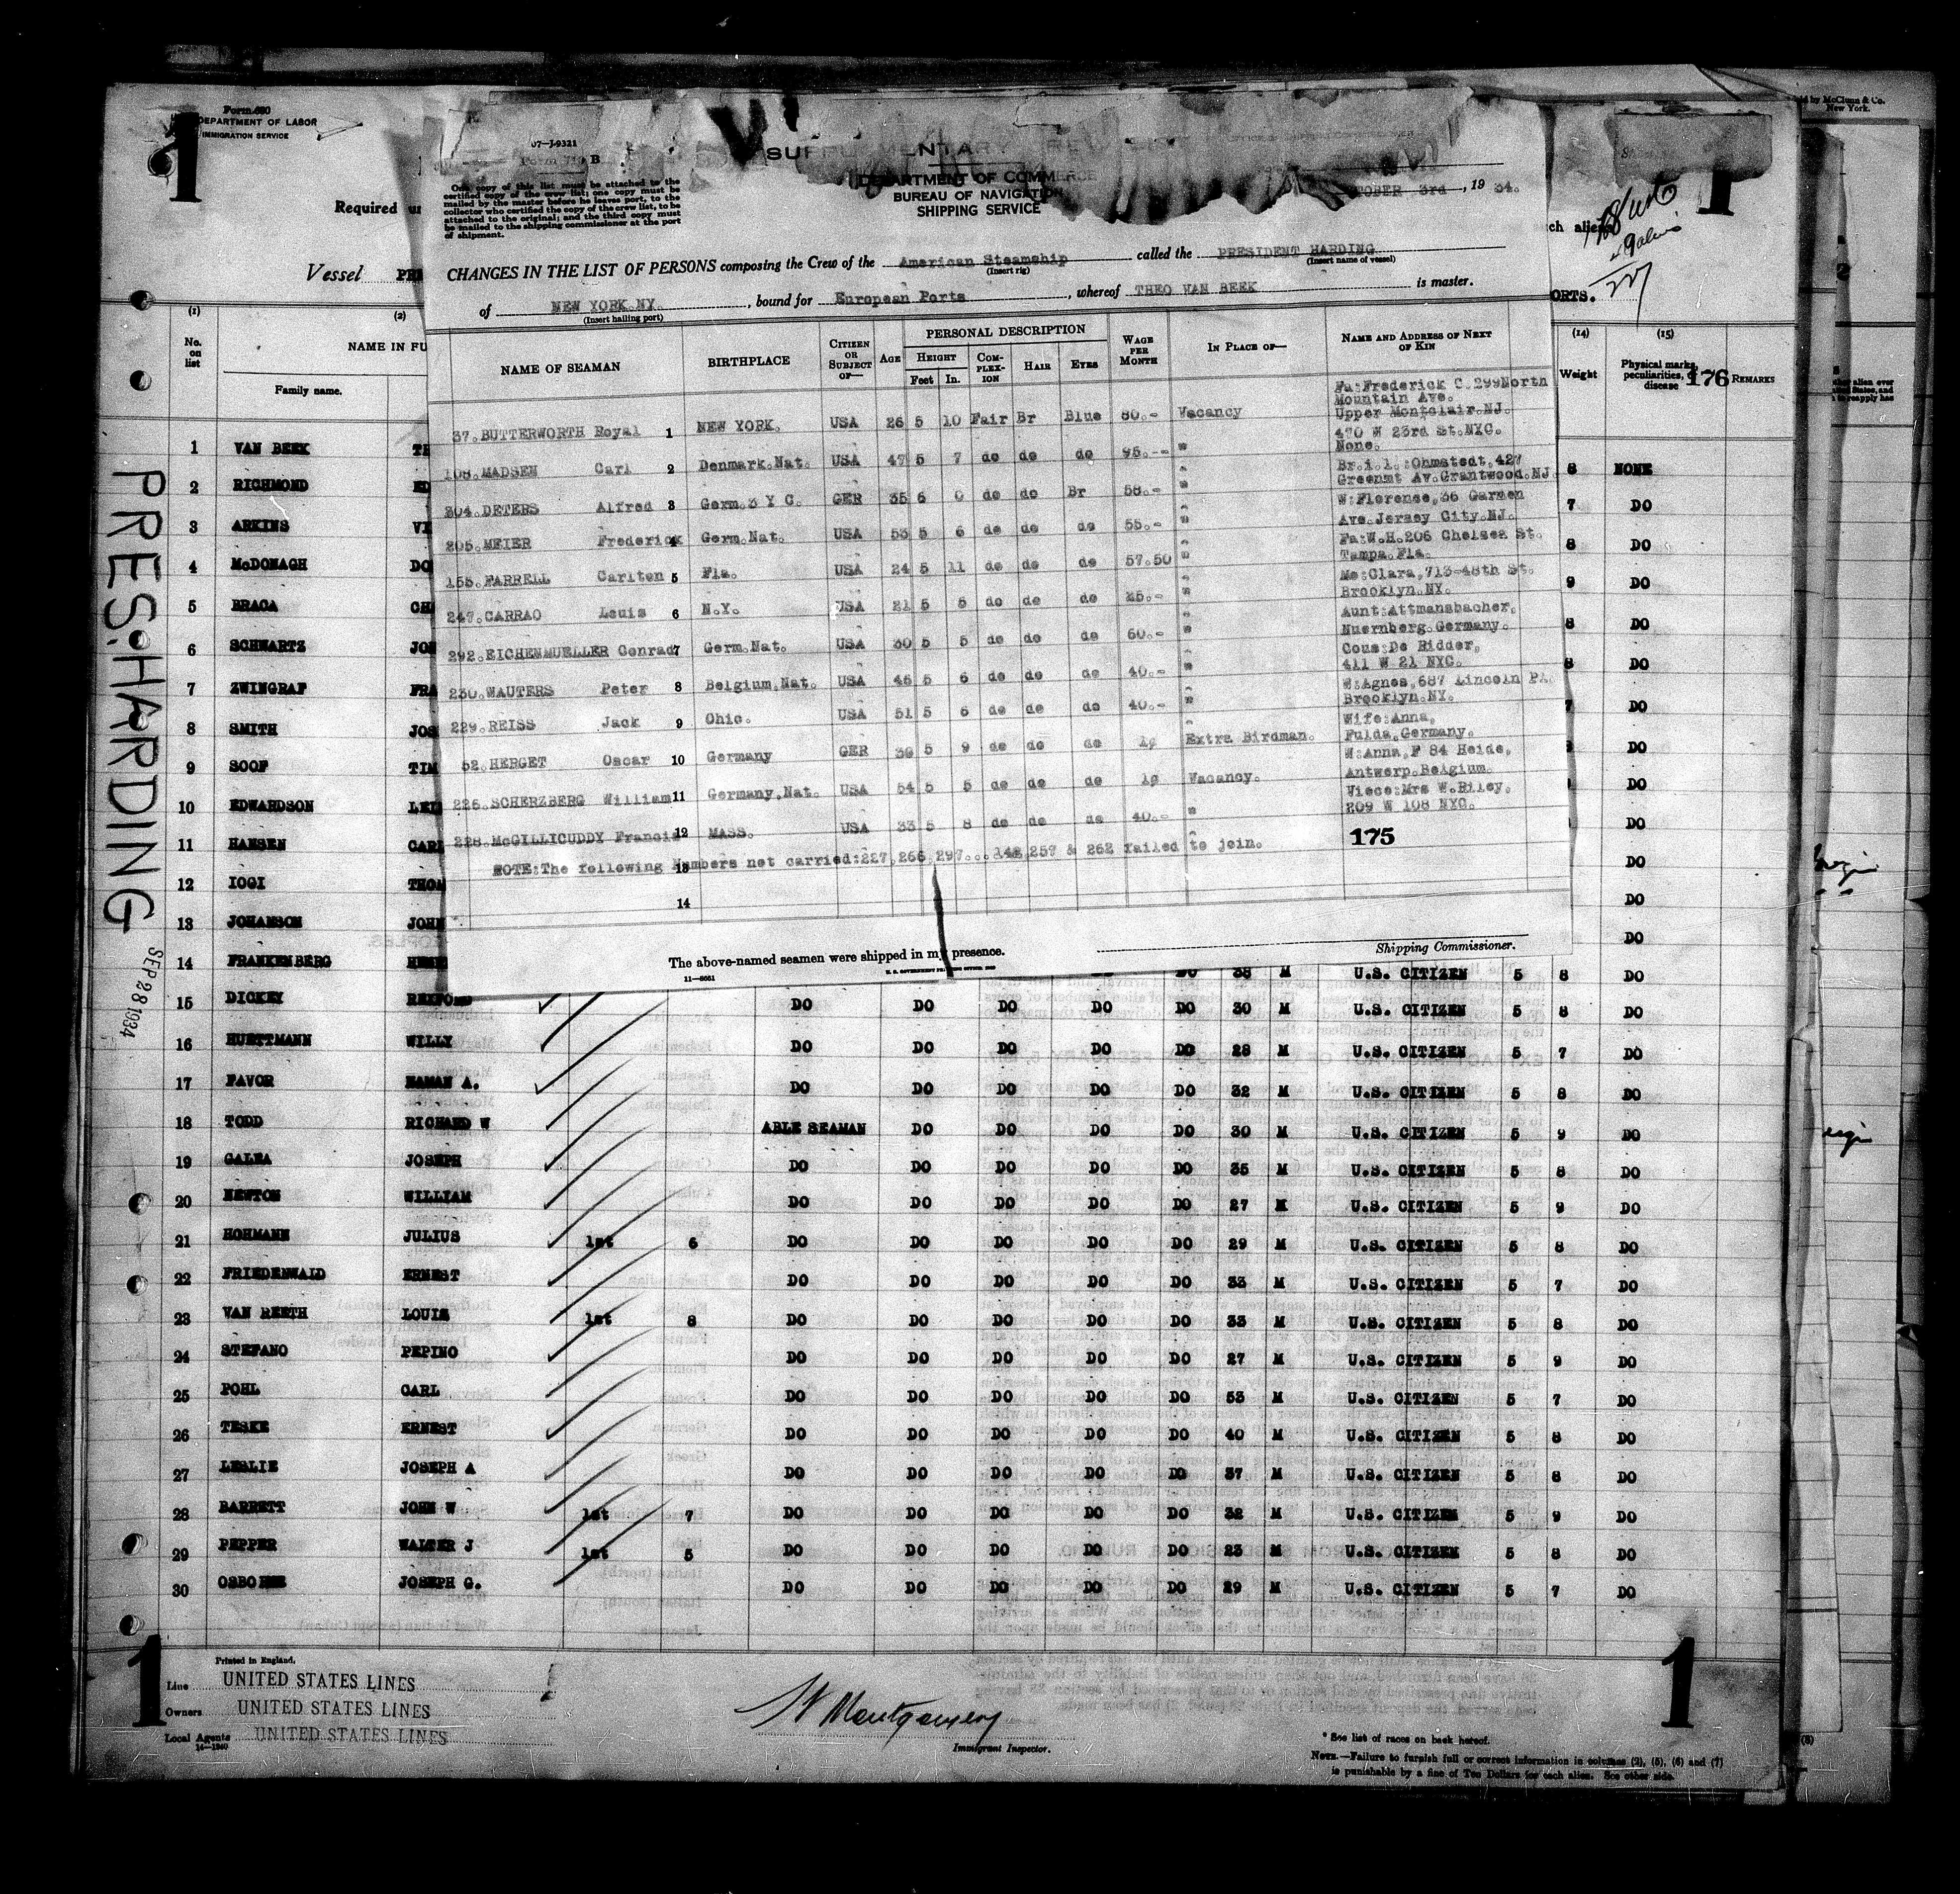 Form 680
DEPARTMENT OF LABOR
IMMIGRATION SERVICE
1
1
Required
Vessel
by McClunn & Co.
New York.
07-J-9321
B
One copy of this list must be attached to the
certified copy of the crew list; one copy must be
mailed by the master before he leaves port, to the
collector who certified the copy of the crew list, to be
attached to the original; and the third copy must
be mailed to the shipping commissioner at the port
of shipment.
DEPARTMENT OF COMMERCE
BUREAU OF NAVIGATION
SHIPPING SERVICE
3rd, 19 34.
CHANGES IN THE LIST OF PERSONS composing the Crew of the American Steamship called the PRESIDENT HARDING
(Insert rig) (Insert name of vessel)
of NEW YORK.NY., bound for European Ports, whereof THEO VAN BEEK is master.
(Insert hailing port)
ORTS.
NAME OF SEAMAN BIRTHPLACE CITIZEN OR SUBJECT OF— AGE PERSONAL DESCRIPTION HEIGHT Feet In. COMPLEXION HAIR EYES WAGE PER MONTH IN PLACE OF— NAME AND ADDRESS OF NEXT OF KIN
37. BUTTERWORTH Royal 1 NEW YORK. USA 26 5 10 Fair Br Blue 80.- Vacancy Fa:Frederick C. 299North Mountain Ave. Upper Montclair.NJ.
108. MADSEN Carl 2 Denmark.Nat. USA 47 5 7 do do do 95.-- " 470 W 23rd St.NYC. None.
304. DETERS Alfred 3 Germ.3 Y C. GER 35 6 0 do do Br 58.- " Br.i.l.:Ohmstedt,427 Greenmt Av.Grantwood.NJ.
205. MEIER Frederick 4 Germ.Nat. USA 53 5 6 do do do 55.- " W:Florense,36 Garmen Ave.Jersey City.NJ.
155. FARRELL Carlton 5 Fla. USA 24 5 11 do do do 57.50 " Fa:W.H.206 Chelsea St. Tampa.Fla.
247. CARRAO Louis 6 N.Y. USA 21 5 5 do do do 25.- " Mo:Clara,713-48th St. Brooklyn.NY.
292. EICHENMUELLER Conrad 7 Germ.Nat. USA 30 5 5 do do do 60.- " Aunt:Attmansbacher, Nuernberg.Germany.
230. WAUTERS Peter 8 Belgium.Nat. USA 45 5 6 do do do 40.- " Cous:De Ridder, 411 W 21 NYC.
229. REISS Jack 9 Ohio. USA 51 5 6 do do do 40.- " W:Agnes,687 Lincoln Pl. Brooklyn.NY.
52. HERGET Oscar 10 Germany GER 39 5 9 do do do 1¢ Extra Birdman. Wife:Anna, Fulda,Germany.
226. SCHERZBERG William 11 Germany.Nat. USA 54 5 5 do do do 1¢ Vacancy. W:Anna, F 84 Heide, Antwerp.Belgium.
228. McGILLICUDDY Francis 12 MASS. USA 33 5 8 do do do 40.- " Niece:Mrs W.Riley, 209 W 108 NYC.
NOTE:The following Numbers not carried:227,266,297...148,257 & 262 failed to join. 175
13
14
The above-named seamen were shipped in my presence. Shipping Commissioner.
11—8661
(1) (2) (14) (15)
No. on list NAME IN FU Family name. Weight Physical marks, peculiarities, or disease 176 REMARKS
1 VAN BEEK
2 RICHMOND 8 NONE
3 ARKINS 7 DO
4 McDONAGH 8 DO
5 BRAGA 9 DO
6 SCHWARTZ 8 DO
7 ZWINGRAF 8 DO
8 SMITH DO
9 SOOP DO
10 EDWARDSON DO
11 HANSEN CARL DO
12 IOGI DO
13 JOHANSON JOHN DO
14 FRANKENBERG DO 38 M U.S. CITIZEN 5 8 DO
15 DICKEY REXFORD DO DO DO DO DO 30 M U.S. CITIZEN 5 8 DO
16 HUETTMANN WILLY DO DO DO DO DO 28 M U.S. CITIZEN 5 7 DO
17 FAVOR HAMAN A. DO DO DO DO DO 32 M U.S. CITIZEN 5 8 DO
18 TODD RICHARD W ABLE SEAMAN DO DO DO DO 30 M U.S. CITIZEN 5 9 DO
19 GALEA JOSEPH DO DO DO DO DO 35 M U.S. CITIZEN 5 8 DO
20 NEWTON WILLIAM DO DO DO DO DO 27 M U.S. CITIZEN 5 9 DO
21 HOHMANN JULIUS 1st 6 DO DO DO DO DO 29 M U.S. CITIZEN 5 8 DO
22 FRIEDENWALD ERNEST DO DO DO DO DO 33 M U.S. CITIZEN 5 7 DO
23 VAN REETH LOUIS 1st 8 DO DO DO DO DO 33 M U.S. CITIZEN 5 8 DO
24 STEFANO PEPINO DO DO DO DO DO 27 M U.S. CITIZEN 5 9 DO
25 POHL CARL DO DO DO DO DO 53 M U.S. CITIZEN 5 7 DO
26 TESKE ERNEST DO DO DO DO DO 40 M U.S. CITIZEN 5 8 DO
27 LESLIE JOSEPH A DO DO DO DO DO 37 M U.S. CITIZEN 5 8 DO
28 BARRETT JOHN W 1st 7 DO DO DO DO DO 32 M U.S. CITIZEN 5 9 DO
29 PEPPER WALTER J 1st 5 DO DO DO DO DO 23 M U.S. CITIZEN 5 8 DO
30 OSBORNE JOSEPH G. DO DO DO DO DO 29 M U.S. CITIZEN 5 7 DO
PRES. HARDING
SEP 28 1934
1
1
Printed in England.
Line UNITED STATES LINES
Owners UNITED STATES LINES
Local Agents UNITED STATES LINES
14—1240
Montgomery
Immigrant Inspector.
* See list of races on back hereof.
NOTE.—Failure to furnish full or correct information in columns (2), (5), (6) and (7)
is punishable by a fine of Ten Dollars for each alien. See other side.